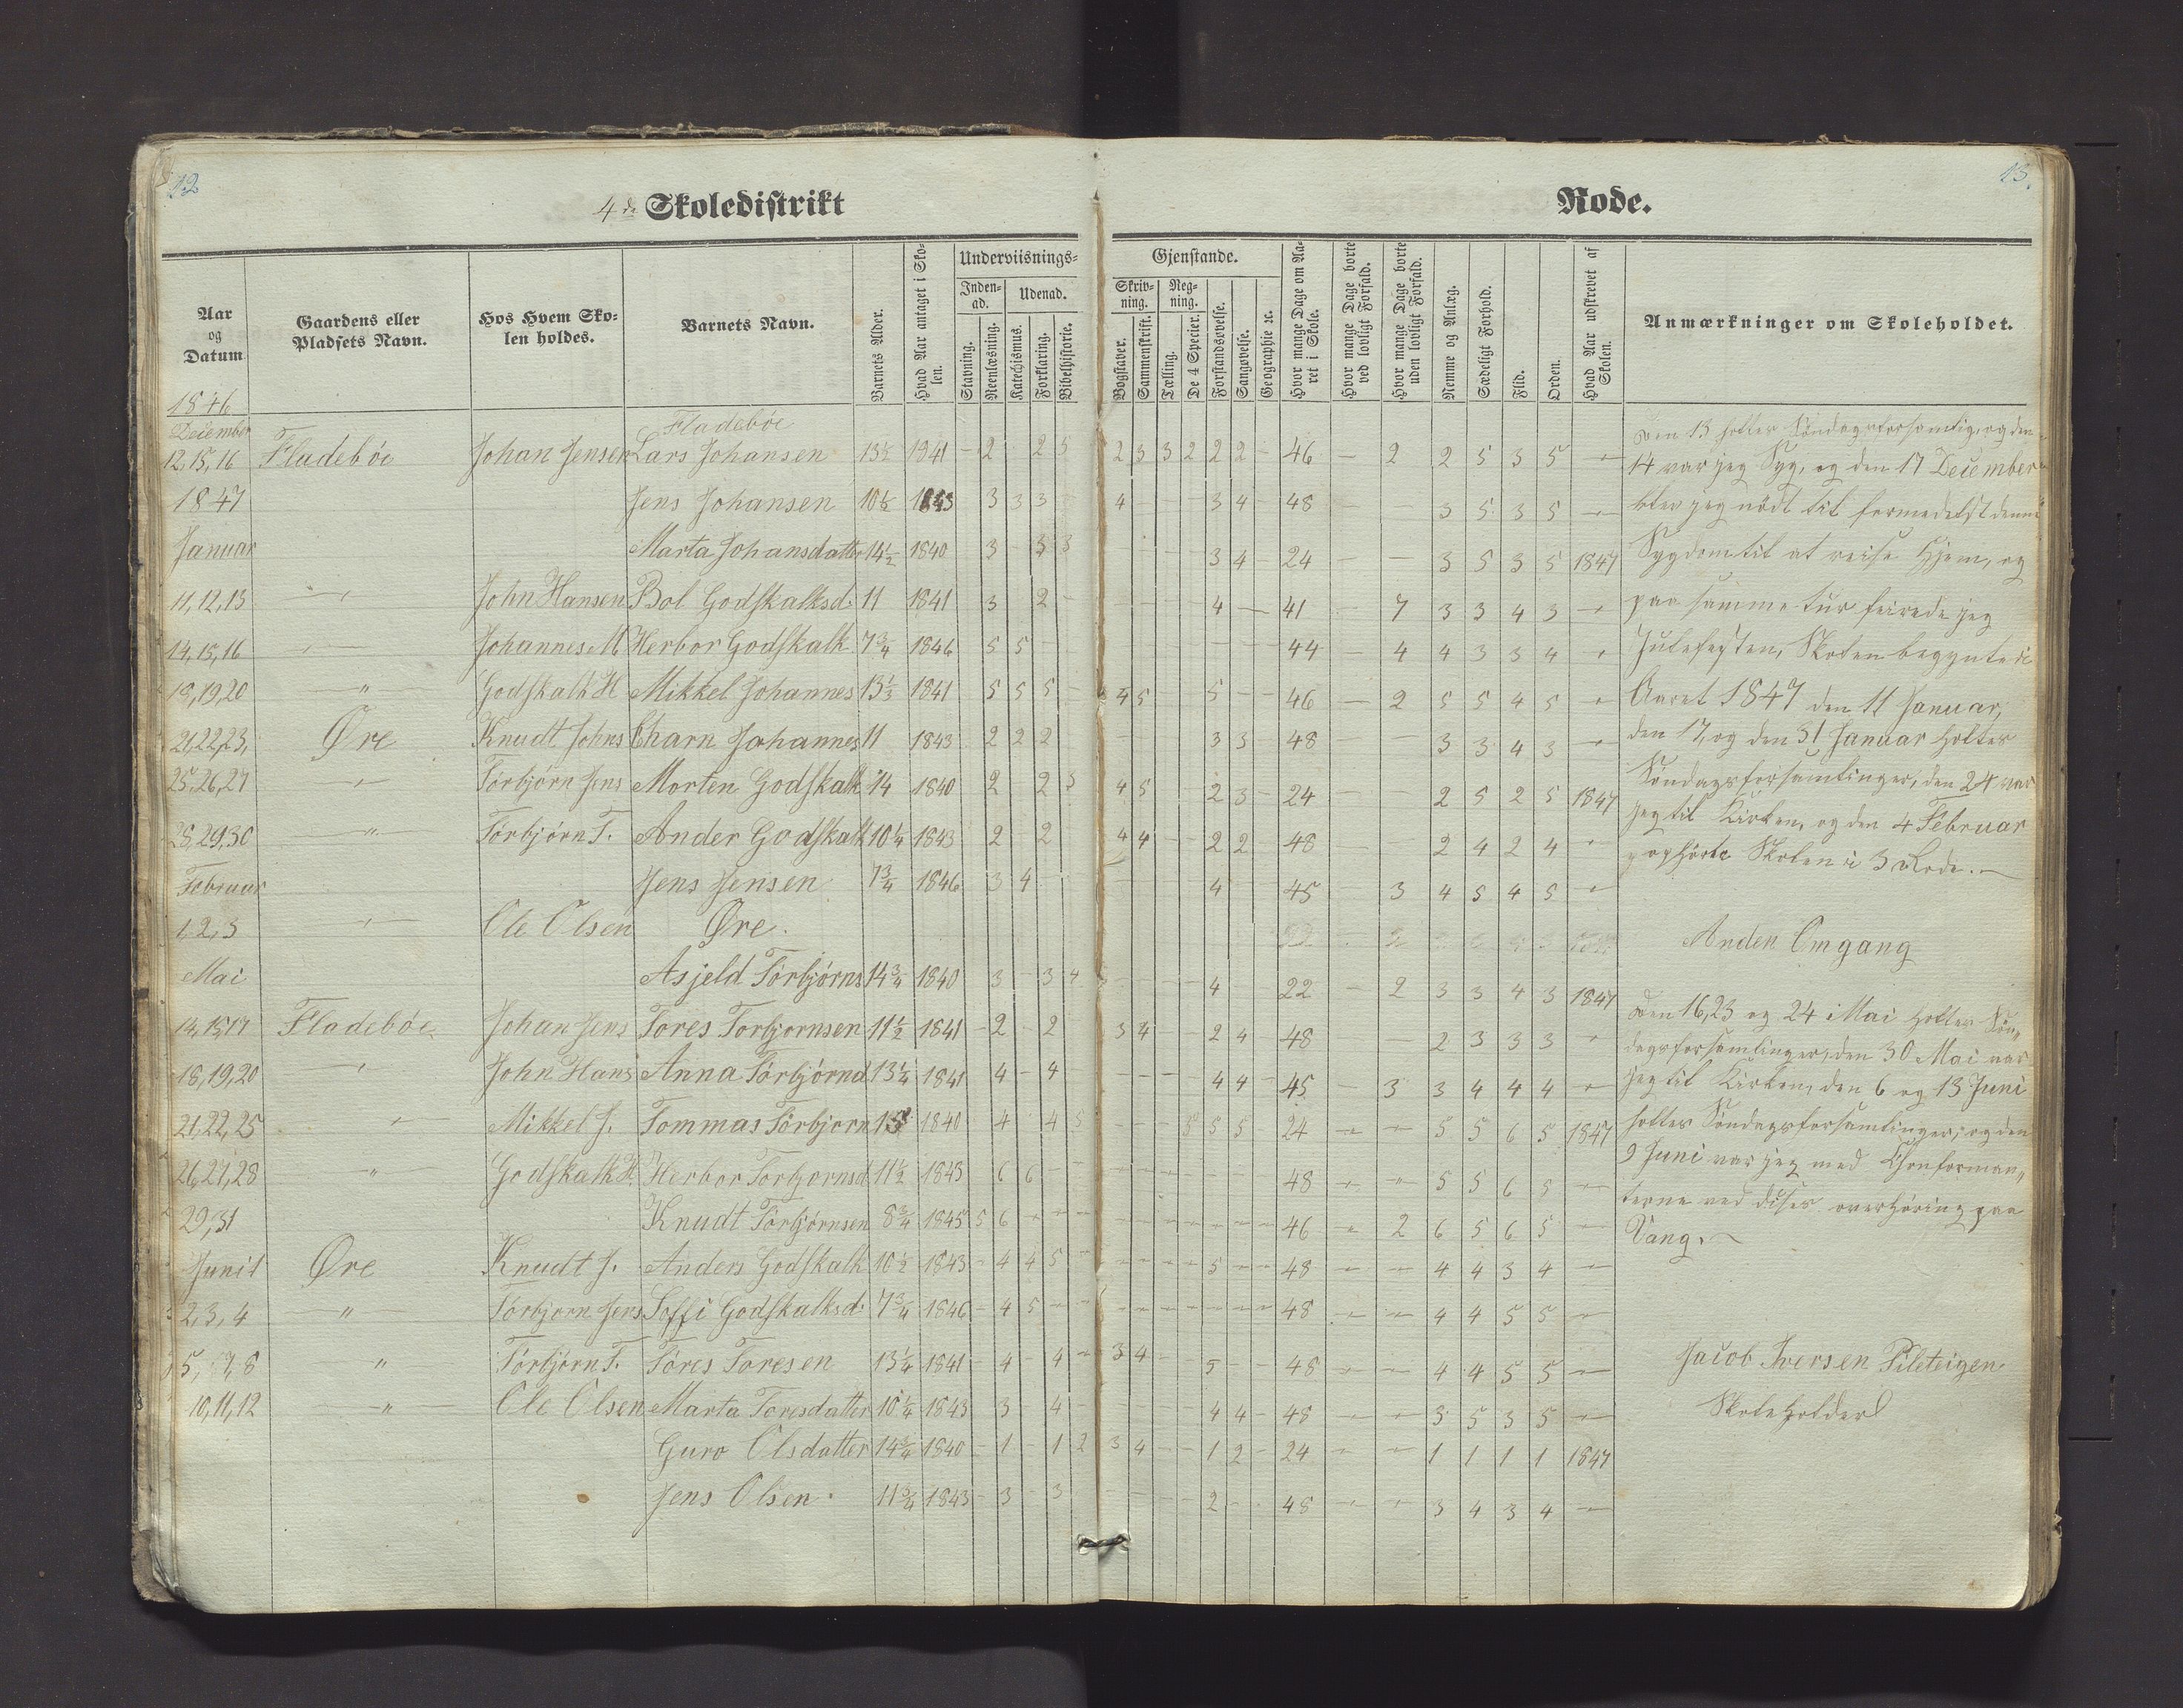 12
13.
4de Skoledistrikt
Rode.
Aar og Datum
Gaardens eller Pladsets Navn.
Hos Hvem Skolen holdes.
Barnets Navn.
Barnets Alder.
Hvad Aar antaget i Skolen.
Underviisnings-
Gjenstande.
Inden-ad.
Udenad.
Skriv-ning.
Reg-ning.
Stavning.
Reenlæsning.
Katechismus.
Forklaring.
Bibelhistorie.
Bogstaver.
Sammenskrift.
Tælling.
De 4 Specier.
Forstandsøvelse.
Sangøvelse.
Geographie ꝛc.
Hvor mange Dage om Aaret i Skole.
Hvor mange Dage borte ved lovligt Forfald.
Hvor mange Dage borte uden lovligt Forfald.
Nemme og Anlæg.
Sædeligt Forhold.
Flid.
Orden.
Hvad Aar udskrevet af Skolen.
Anmærkninger om Skoleholdet.
1846
December Fladebøe
12, 15, 16 Fladebøe Johan Jensen Lars Johansen 13½ 1941 - 2 2 5 2 3 3 2 2 2 - 46 - 2 2 5 3 5 -
1847 Jens Johansen 10½ 1843 3 3 3 4 - - - 3 4 - 48 - - 3 5 3 5 -
Januar Marta Johansdatter 14½ 1840 3 - 3 3 3 4 - 24 - - 3 5 3 5 1847
11, 12, 13 - John Hansen Bol Godskalksd. 11 1841 3 2 - 4 - 41 7 3 3 4 3 -
14, 15, 16 - Johannes M Herbor Godskalk 7¾ 1846 5 5 - 44 - 4 4 3 3 4 -
18, 19, 20 " Godskalk H Mikkel Johannes 13½ 1841 5 5 5 - 4 5 5 - - 46 - 2 5 5 4 5 -
21, 22, 23, Øre Knudt Johns Charn Johannes 11 1843 2 2 2 3 3 - 48 - - 3 3 4 3 -
25, 26, 27 - Törbjörn Jens Morten Godskalk 14 1840 2 2 3 4 5 2 3 - 24 - - 2 5 2 5 1847
28, 29, 30 " Törbjörn T. Ander Godskalk 10¼ 1843 2 - 2 4 4 - - 2 2 - 48 - - 2 4 2 4 -
Februar Jens Jensen 7¾ 1846 3 4 4 45 3 4 5 4 5 -
1, 2, 3 - Ole Olsen Øre.
Mai Asjeld Törbjörns 14¾ 1840 3 - 3 4 4 22 - 2 3 3 4 3 1847
14, 15, 17 Fladebøe Johan Jens Tores Torbjornsen 11½ 1841 - 2 - 2 3 4 2 4 - 48 - - 2 3 3 3 -
18, 19, 20 - John Hans Anna Törbjörnd 13¼ 1841 4 - 4 4 4 - 45 - 3 3 4 4 4 -
21, 22, 25 - Mikkel J. Tommas Törbjorn 15 1840 4 4 5 5 5 5 - 24 - - 5 5 6 5 1847
26, 27, 28 " Godskalk H. Herbor Torbjornsd 11½ 1843 6 6 - - 48 - - 5 5 6 5 -
29, 31 Knudt Törbjörnsen 8¾ 1845 5 6 - - - 46 - 2 6 5 6 5 -
Juni 1 Øre Knudt J. Anders Godskalk 10½ 1843 - 4 4 5 - 5 - - 48 - - 4 4 3 4 -
2, 3, 4 " Törbjorn Jens Soffi Godskalksd. 7¾ 1846 - 4 5 - - 48 - - 4 4 5 5 -
5, 7, 8 " Törbjörn T. Töres Toresen 13¼ 1841 - 4 - 4 - 3 4 - 5 - - 48 - - 4 4 5 5 -
10, 11, 12 " Ole Olsen Marta Toresdatter 10¼ 1843 3 4 - 4 4 - 48 - - 3 5 3 5 -
Guro Olsdatter 14¾ 1840 - 1 - 1 2 3 4 - - 1 2 - 24 - - 1 1 1 1 1847
Jens Olsen 11¾ 1843 - 3 - 3 2 - 48 - - 3 4 3 4 -
Den 13 holtes Søndagsforsamlig, og den
14 var jeg Syg, og den 17 December
blev jeg nödt til formedelst denne
Sygdom til at reise Hjem, og
paa samme tur feirede jeg
Julefesten, Skolen begynte i
Aaret 1847 den 11 Januar,
den 17, og den 31 Januar holtes
Søndagsforsamlinger, den 24 var
jeg til Kirken, og den 4 Februar
ophörte Skolen i 3 Rode.
Anden Omgang
Den 16, 23 og 24 Mai holtes Søn-
dagsforsamlinger, den 30 Mai var
jeg til Kirken, den 6 og 13 Juni
holtes Søndagsforsamlinger, og den
9 Juni var jeg med Chonforman-
terne ved dises overhøring paa
Vang.
Jacob Iversen Pileteigen
Skoleholder